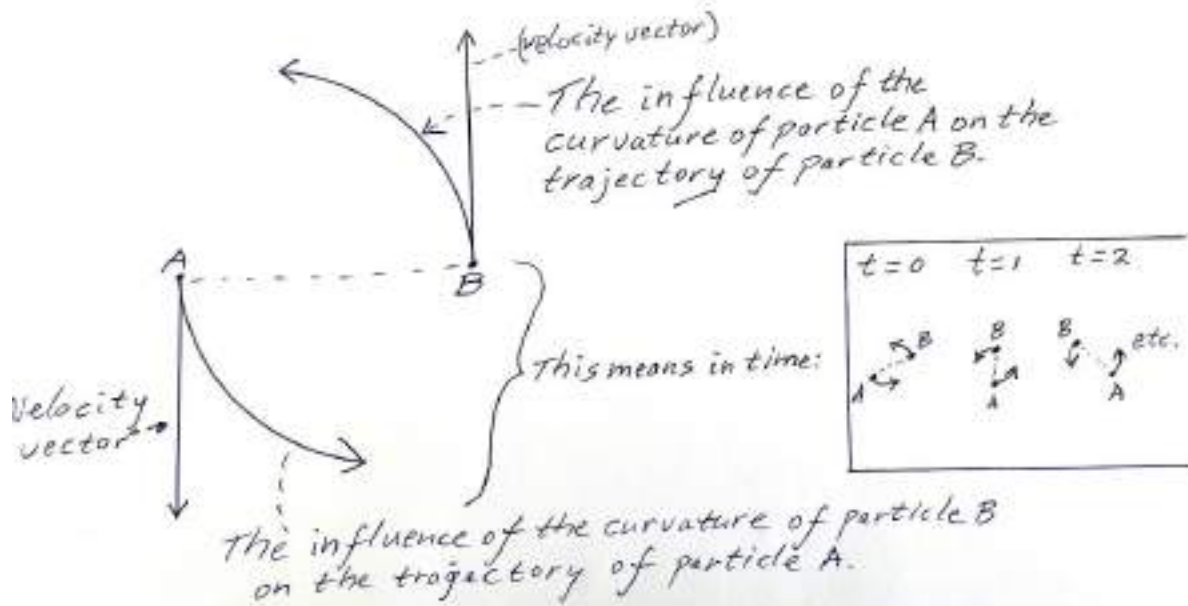 (velocity vector)
The influence of the
curvature of particle A on the
trajectory of particle B.
A
B
This means in time:
t=0 t=1 t=2
B B B etc.
A A A
Velocity
vector
The influence of the curvature of particle B
on the trajectory of particle A.